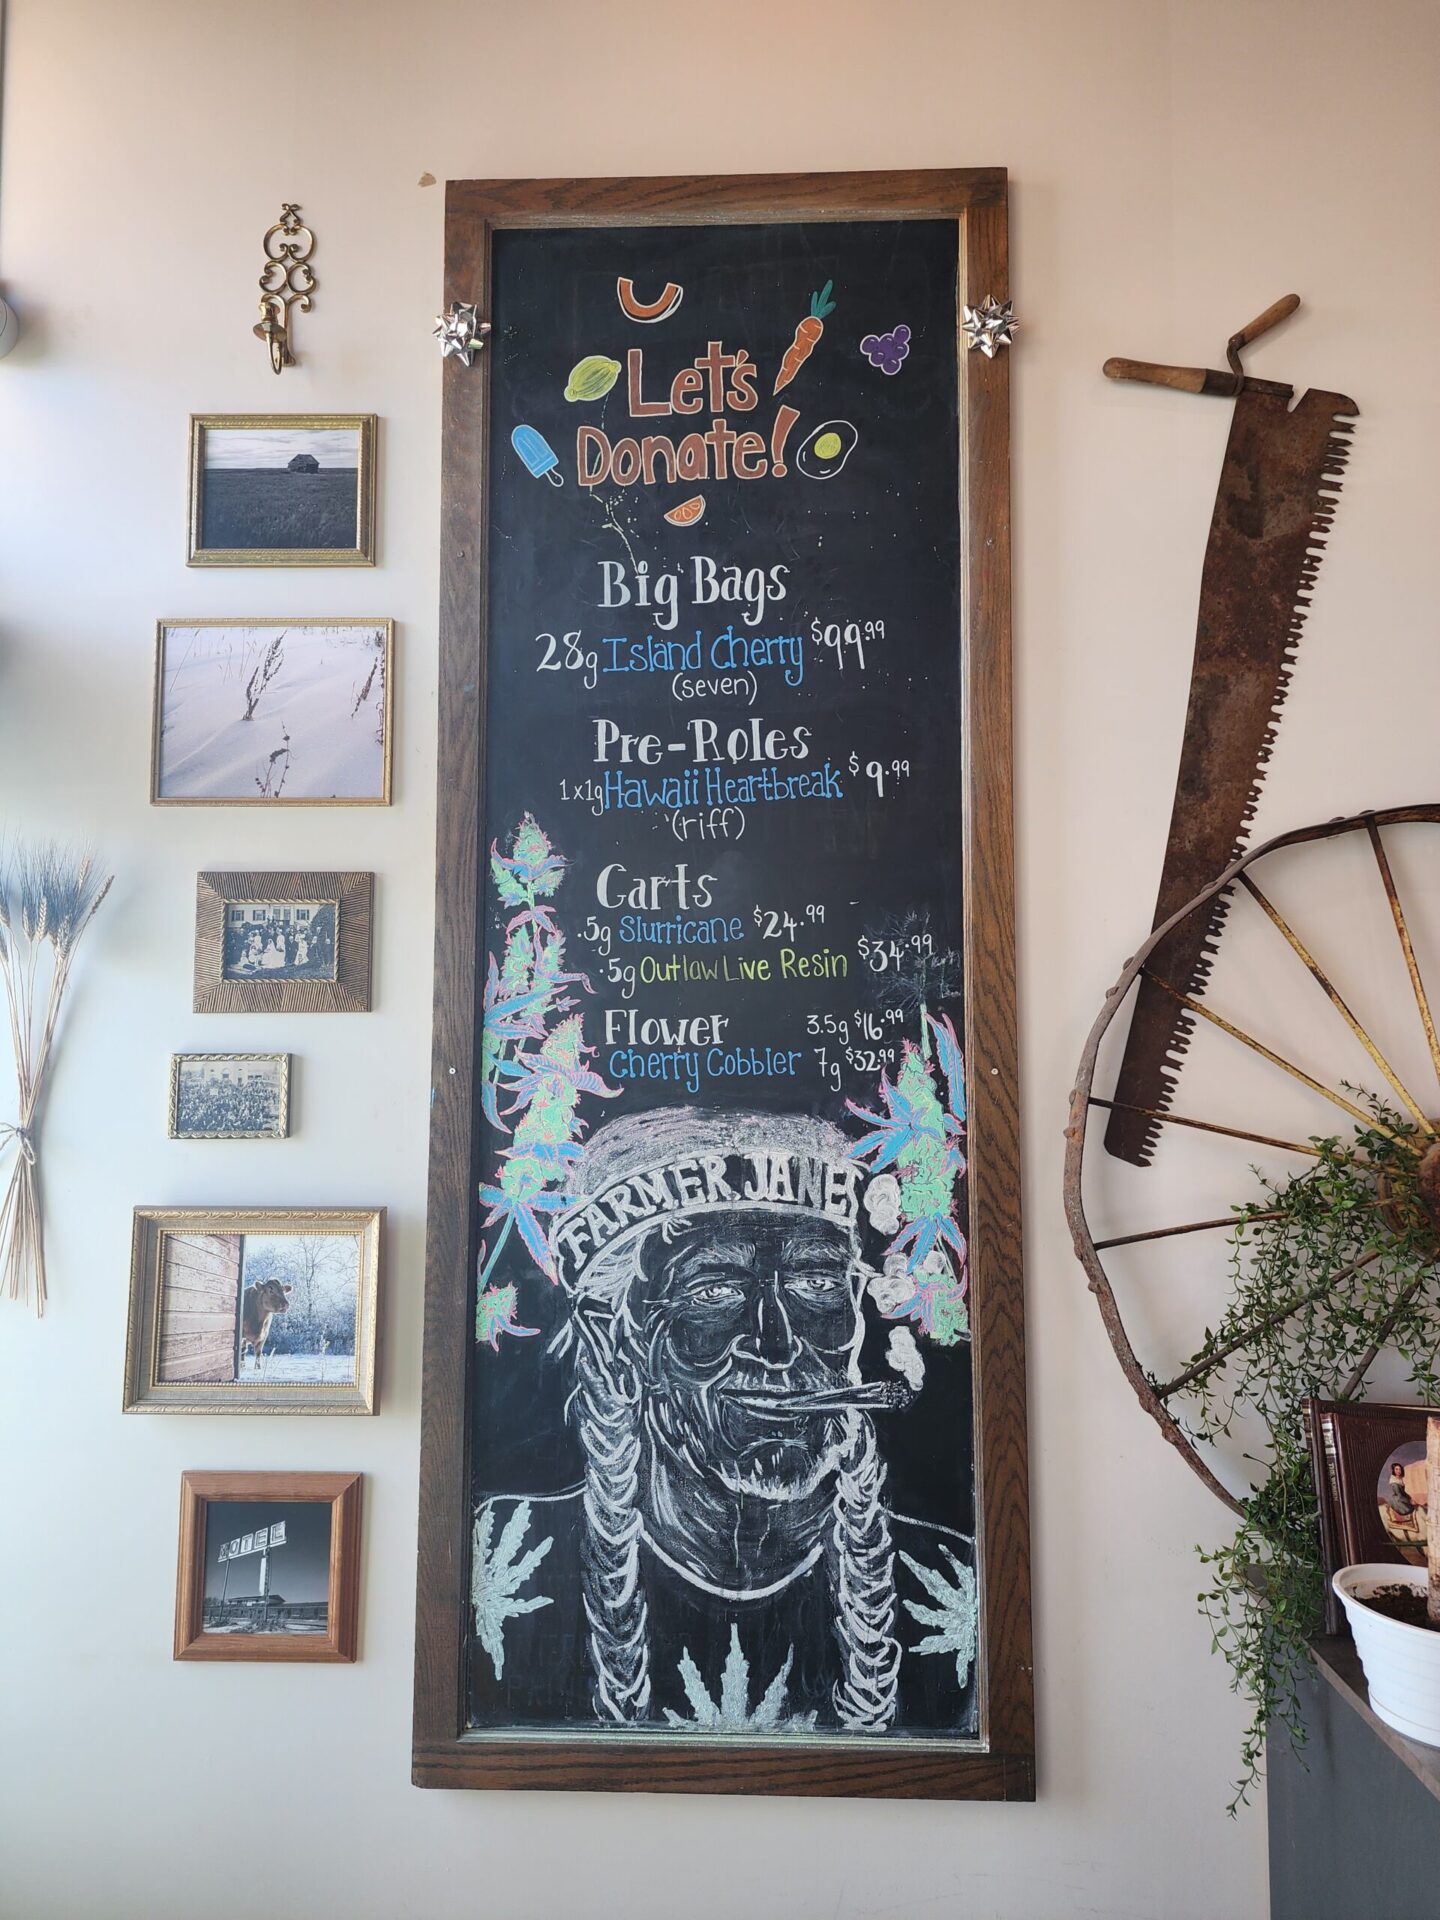 Let's
Donate!
Big Bags
28g Island Cherry $99.99
(seven)
Pre-Roles
1x1g Hawaii Heartbreak $9.99
(riff)
Carts
.5g Slurricane $24.99
.5g Outlaw Live Resin $34.99
Flower 3.5g $16.99
Cherry Cobbler 7g $32.99
FARMER JANES
MOTEL